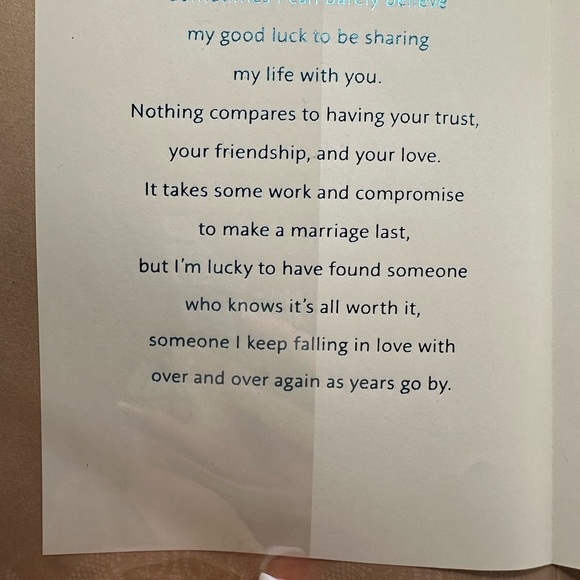 Sometimes I can barely believe
my good luck to be sharing
my life with you.
Nothing compares to having your trust,
your friendship, and your love.
It takes some work and compromise
to make a marriage last,
but I'm lucky to have found someone
who knows it's all worth it,
someone I keep falling in love with
over and over again as years go by.